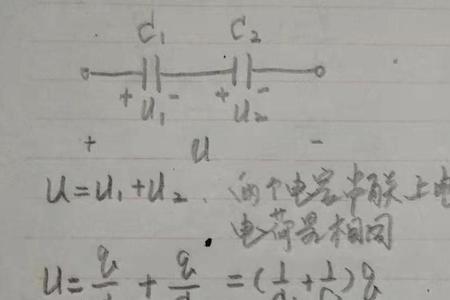 C₁ C₂
+ - + -
U₁ U₂
+ U -
U=U₁+U₂. 两个电容串联上电
电荷量相同
U= q/ + q/ = (1/ + 1/ )q